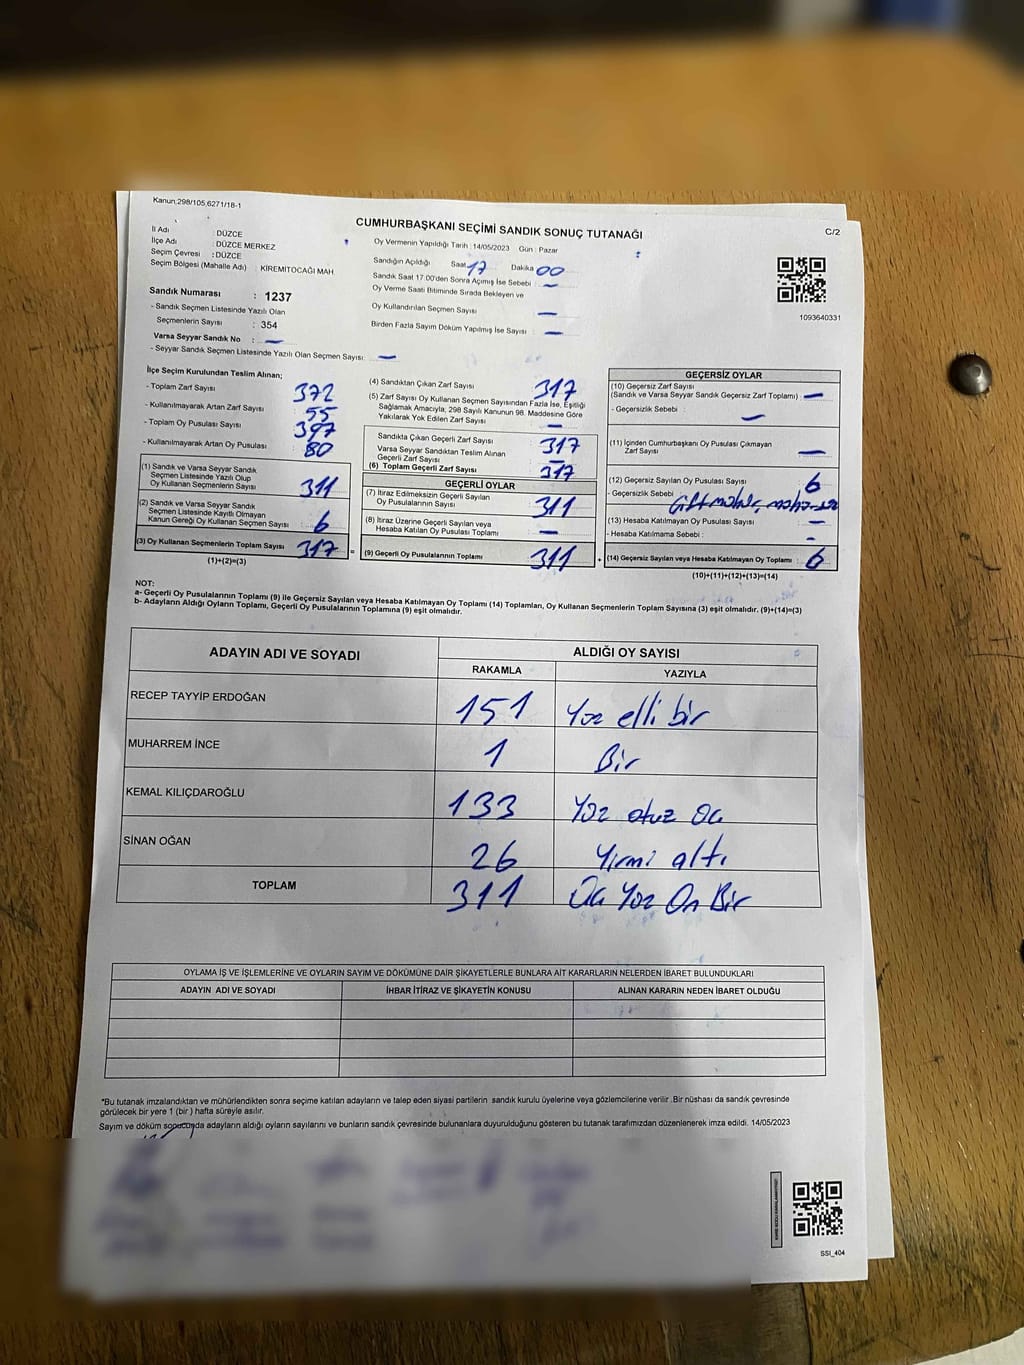 Kanun,298/105,6271/18-1
CUMHURBAŞKANI SEÇİMİ SANDIK SONUÇ TUTANAĞI
C/2
İl Adı : DÜZCE
İlçe Adı : DÜZCE MERKEZ
Seçim Çevresi : DÜZCE
Seçim Bölgesi (Mahalle Adı) : KİREMİTOCAĞI MAH.
Sandık Numarası : 1237
- Sandık Seçmen Listesinde Yazılı Olan
Seçmenlerin Sayısı : 354
Varsa Seyyar Sandık No : —
- Seyyar Sandık Seçmen Listesinde Yazılı Olan Seçmen Sayısı: —
Oy Vermenin Yapıldığı Tarih : 14/05/2023 Gün : Pazar
Sandığın Açıldığı Saat 17 Dakika 00
Sandık Saat 17:00'den Sonra Açımış İse Sebebi : —
Oy Verme Saati Bitiminde Sırada Bekleyen ve
Oy Kullandırılan Seçmen Sayısı —
Birden Fazla Sayım Döküm Yapılmış İse Sayısı : —
1093640331
İlçe Seçim Kurulundan Teslim Alınan;
- Toplam Zarf Sayısı 372
- Kullanılmayarak Artan Zarf Sayısı 55
- Toplam Oy Pusulası Sayısı 397
- Kullanılmayarak Artan Oy Pusulası 80
(1) Sandık ve Varsa Seyyar Sandık
Seçmen Listesinde Yazılı Olup
Oy Kullanan Seçmenlerin Sayısı 311
(2) Sandık ve Varsa Seyyar Sandık
Seçmen Listesinde Kayıtlı Olmayan
Kanun Gereği Oy Kullanan Seçmen Sayısı 6
(3) Oy Kullanan Seçmenlerin Toplam Sayısı 317 =
(1)+(2)=(3)
(4) Sandıktan Çıkan Zarf Sayısı 317
(5) Zarf Sayısı Oy Kullanan Seçmen Sayısından Fazla İse, Eşitliği
Sağlamak Amacıyla, 298 Sayılı Kanunun 98. Maddesine Göre
Yakılarak Yok Edilen Zarf Sayısı —
Sandıkta Çıkan Geçerli Zarf Sayısı 317
Varsa Seyyar Sandıktan Teslim Alınan
Geçerli Zarf Sayısı —
(6) Toplam Geçerli Zarf Sayısı 317
GEÇERLİ OYLAR
(7) İtiraz Edilmeksizin Geçerli Sayılan
Oy Pusulalarının Sayısı 311
(8) İtiraz Üzerine Geçerli Sayılan veya
Hesaba Katılan Oy Pusulası Toplamı —
(9) Geçerli Oy Pusulalarının Toplamı 311 +
GEÇERSİZ OYLAR
(10) Geçersiz Zarf Sayısı
(Sandık ve Varsa Seyyar Sandık Geçersiz Zarf Toplamı) : —
- Geçersizlik Sebebi : —
(11) İçinden Cumhurbaşkanı Oy Pusulası Çıkmayan
Zarf Sayısı —
(12) Geçersiz Sayılan Oy Pusulası Sayısı 6
- Geçersizlik Sebebi
(13) Hesaba Katılmayan Oy Pusulası Sayısı —
- Hesaba Katılmama Sebebi : —
(14) Geçersiz Sayılan veya Hesaba Katılmayan Oy Toplamı 6
(10)+(11)+(12)+(13)=(14)
NOT:
a- Geçerli Oy Pusulalarının Toplamı (9) ile Geçersiz Sayılan veya Hesaba Katılmayan Oy Toplamı (14) Toplamları, Oy Kullanan Seçmenlerin Toplam Sayısına (3) eşit olmalıdır. (9)+(14)=(3)
b- Adayların Aldığı Oyların Toplamı, Geçerli Oy Pusulalarının Toplamına (9) eşit olmalıdır.
ADAYIN ADI VE SOYADI ALDIĞI OY SAYISI
RAKAMLA YAZIYLA
RECEP TAYYİP ERDOĞAN 151 Yüz elli bir
MUHARREM İNCE 1 Bir
KEMAL KILIÇDAROĞLU 133 Yüz otuz Üç
SİNAN OĞAN 26 Yirmi altı
TOPLAM 311 Üç Yüz On Bir
OYLAMA İŞ VE İŞLEMLERİNE VE OYLARIN SAYIM VE DÖKÜMÜNE DAİR ŞİKAYETLERLE BUNLARA AİT KARARLARIN NELERDEN İBARET BULUNDUKLARI
ADAYIN ADI VE SOYADI İHBAR İTİRAZ VE ŞİKAYETİN KONUSU ALINAN KARARIN NEDEN İBARET OLDUĞU
*Bu tutanak imzalandıktan ve mühürlendikten sonra seçime katılan adayların ve talep eden siyasi partilerin sandık kurulu üyelerine veya gözlemcilerine verilir. Bir nüshası da sandık çevresinde
görülecek bir yere 1 (bir) hafta süreyle asılır.
Sayım ve döküm sonucunda adayların aldığı oyların sayılarını ve bunların sandık çevresinde bulunanlara duyurulduğunu gösteren bu tutanak tarafımızdan düzenlenerek imza edildi. 14/05/2023
SSİ_404